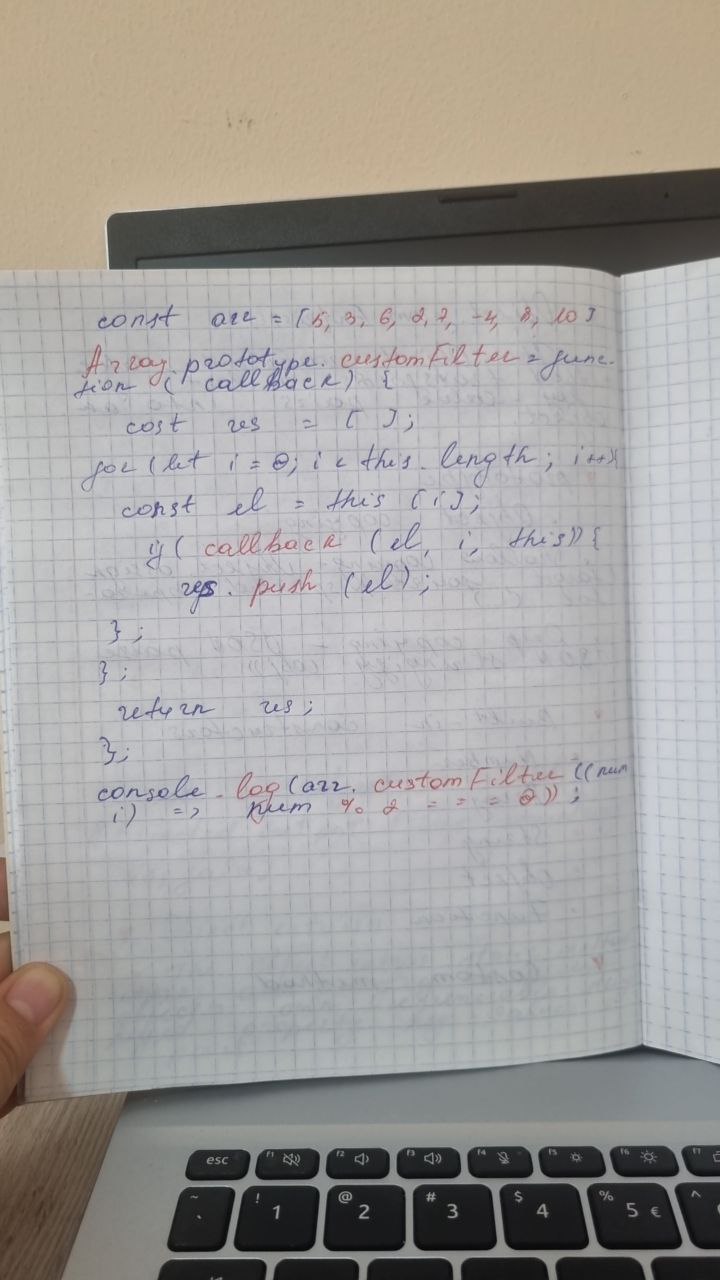 const arr = [5, 3, 6, 2, 7, -4, 8, 10]
Array.prototype.customFilter = func-
tion ( callback) {
cost res = [ ];
for (let i = 0; i < this.length; i++){
const el = this [i];
if ( callback (el, i, this)) {
res.push (el);
};
};
return res;
};
console.log(arr.customFilter ((num
i) => num % 2 === 0));
esc
F1
F2
F3
F4
F5
F6
F7
~ `
! 1
@ 2
# 3
$ 4
% 5 €
^